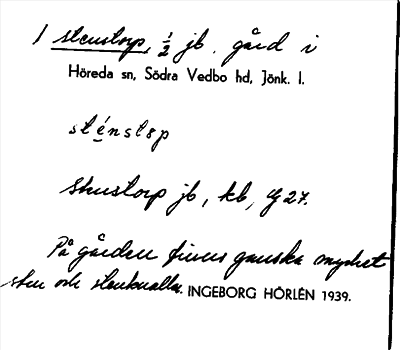 1 Stenstorp, ½ jb. gård i
Höreda sn, Södra Vedbo hd, Jönk. l.
sténstɵp
Stenstorp jb, kb, Gj 27.
På gården finns ganska mycket
sten och stenkullar. INGEBORG HÖRLÉN 1939.